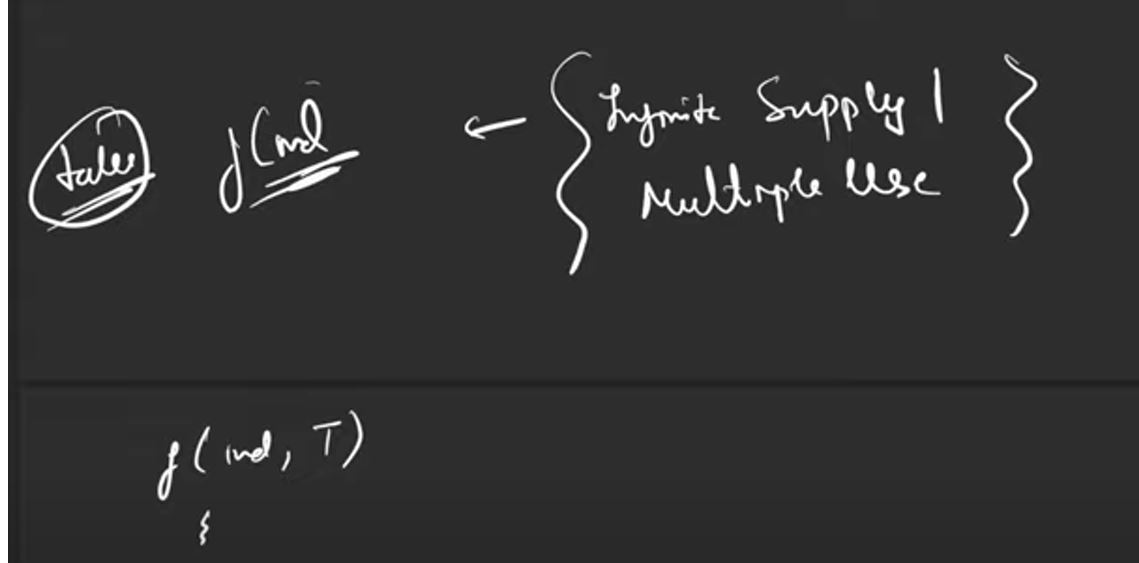 take f(ind ← { Infinite Supply |
Multiple Use }
f(ind, T)
{